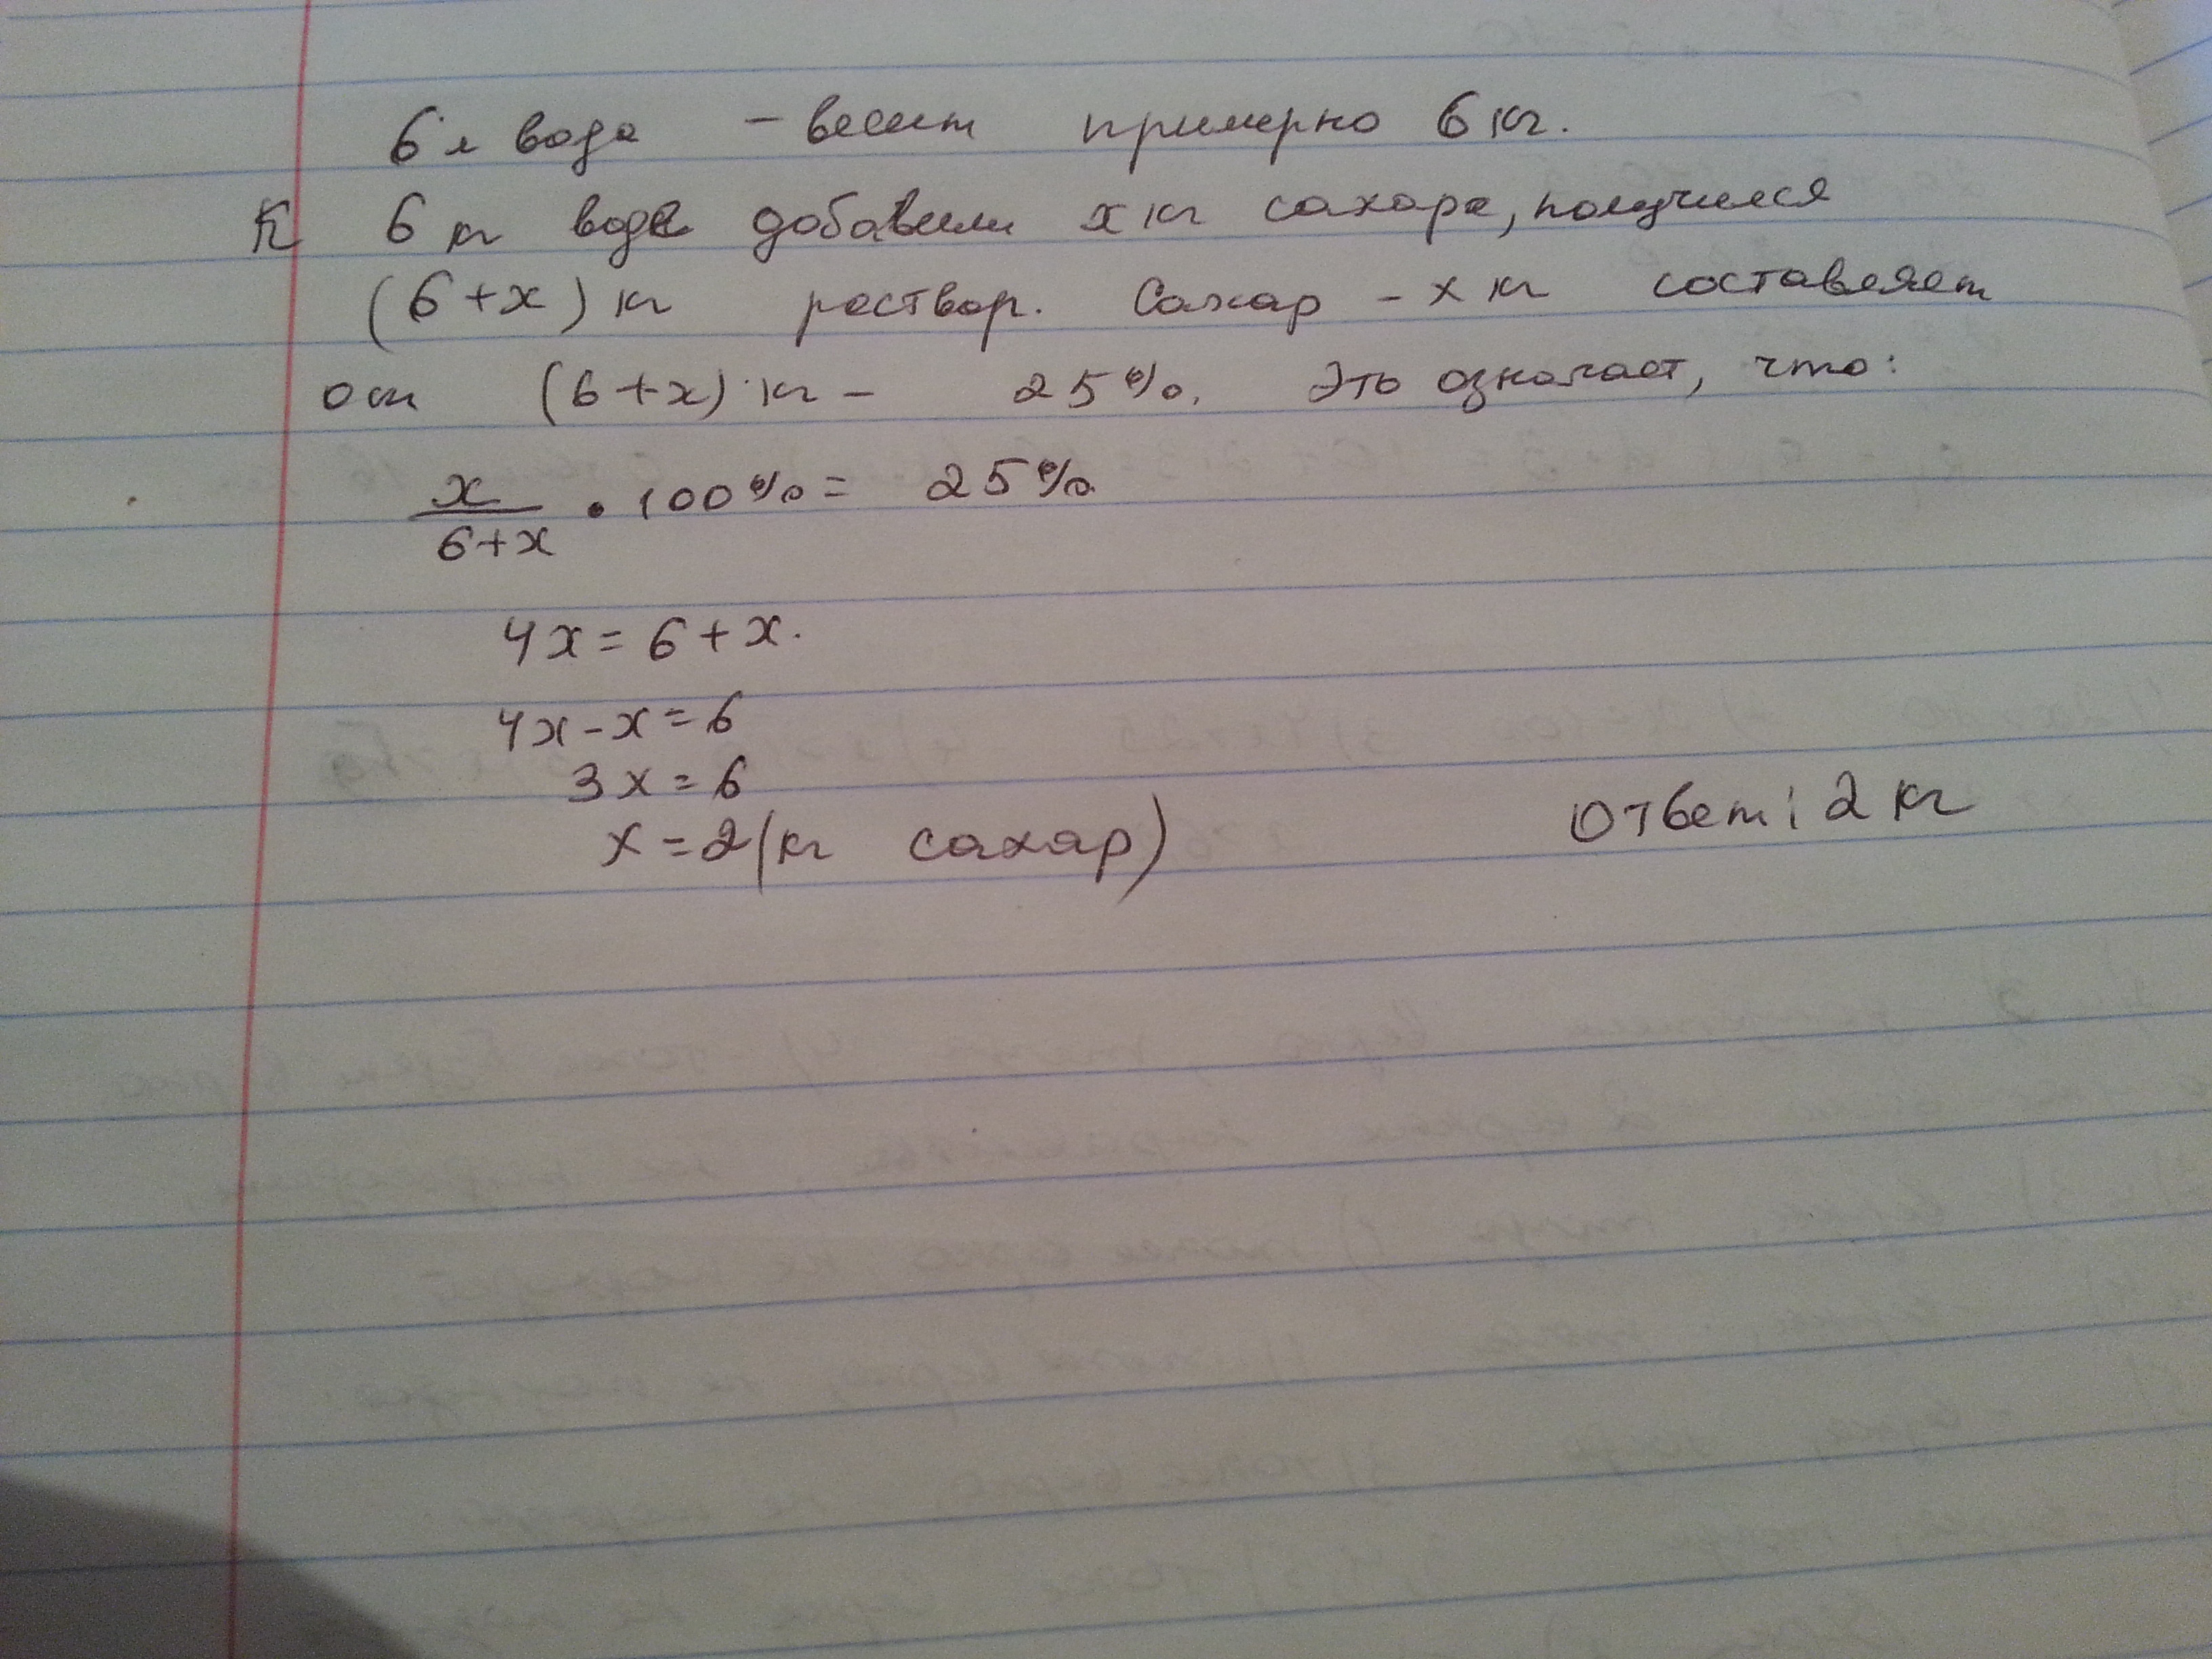 6 л вода – весит примерно 6 кг.
К 6 кг воде добавили x кг сахара, получился
(6+x) кг раствор. Сахар – x кг составляет
от (6+x) кг – 25%. Это означает, что:
x/(6+x) • 100% = 25%
4x = 6 + x.
4x – x = 6
3x = 6
x = 2 (кг сахар)
Ответ: 2 кг